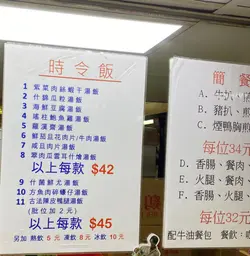 時令飯
1 紫菜肉絲蝦干湯飯
2 什錦瓜粒湯飯
3 海鮮豆腐湯飯
4 瑤柱鮑魚雞湯飯
5 羅漢齋湯飯
6 鮮茄豆花肉片/牛肉湯飯
7 咸且肉片湯飯
8 翠肉瓜雲耳什燴湯飯
以上每款 $42
9 什菌鮮尤湯飯
10 方魚肉碎蠔仔湯飯
11 古法陳皮鴨腿湯飯
(批位加2元)
以上每款 $45
另加 熱飲 5 元 凍飲 8 元 冰飲 10 元
簡餐
A. 牛扒、
B. 豬扒、
C. 煙鴨胸
每位34
D. 香腸、餐肉
E. 火腿、餐肉
F. 香腸、火腿、
每位32元
配牛油餐包 餐飲